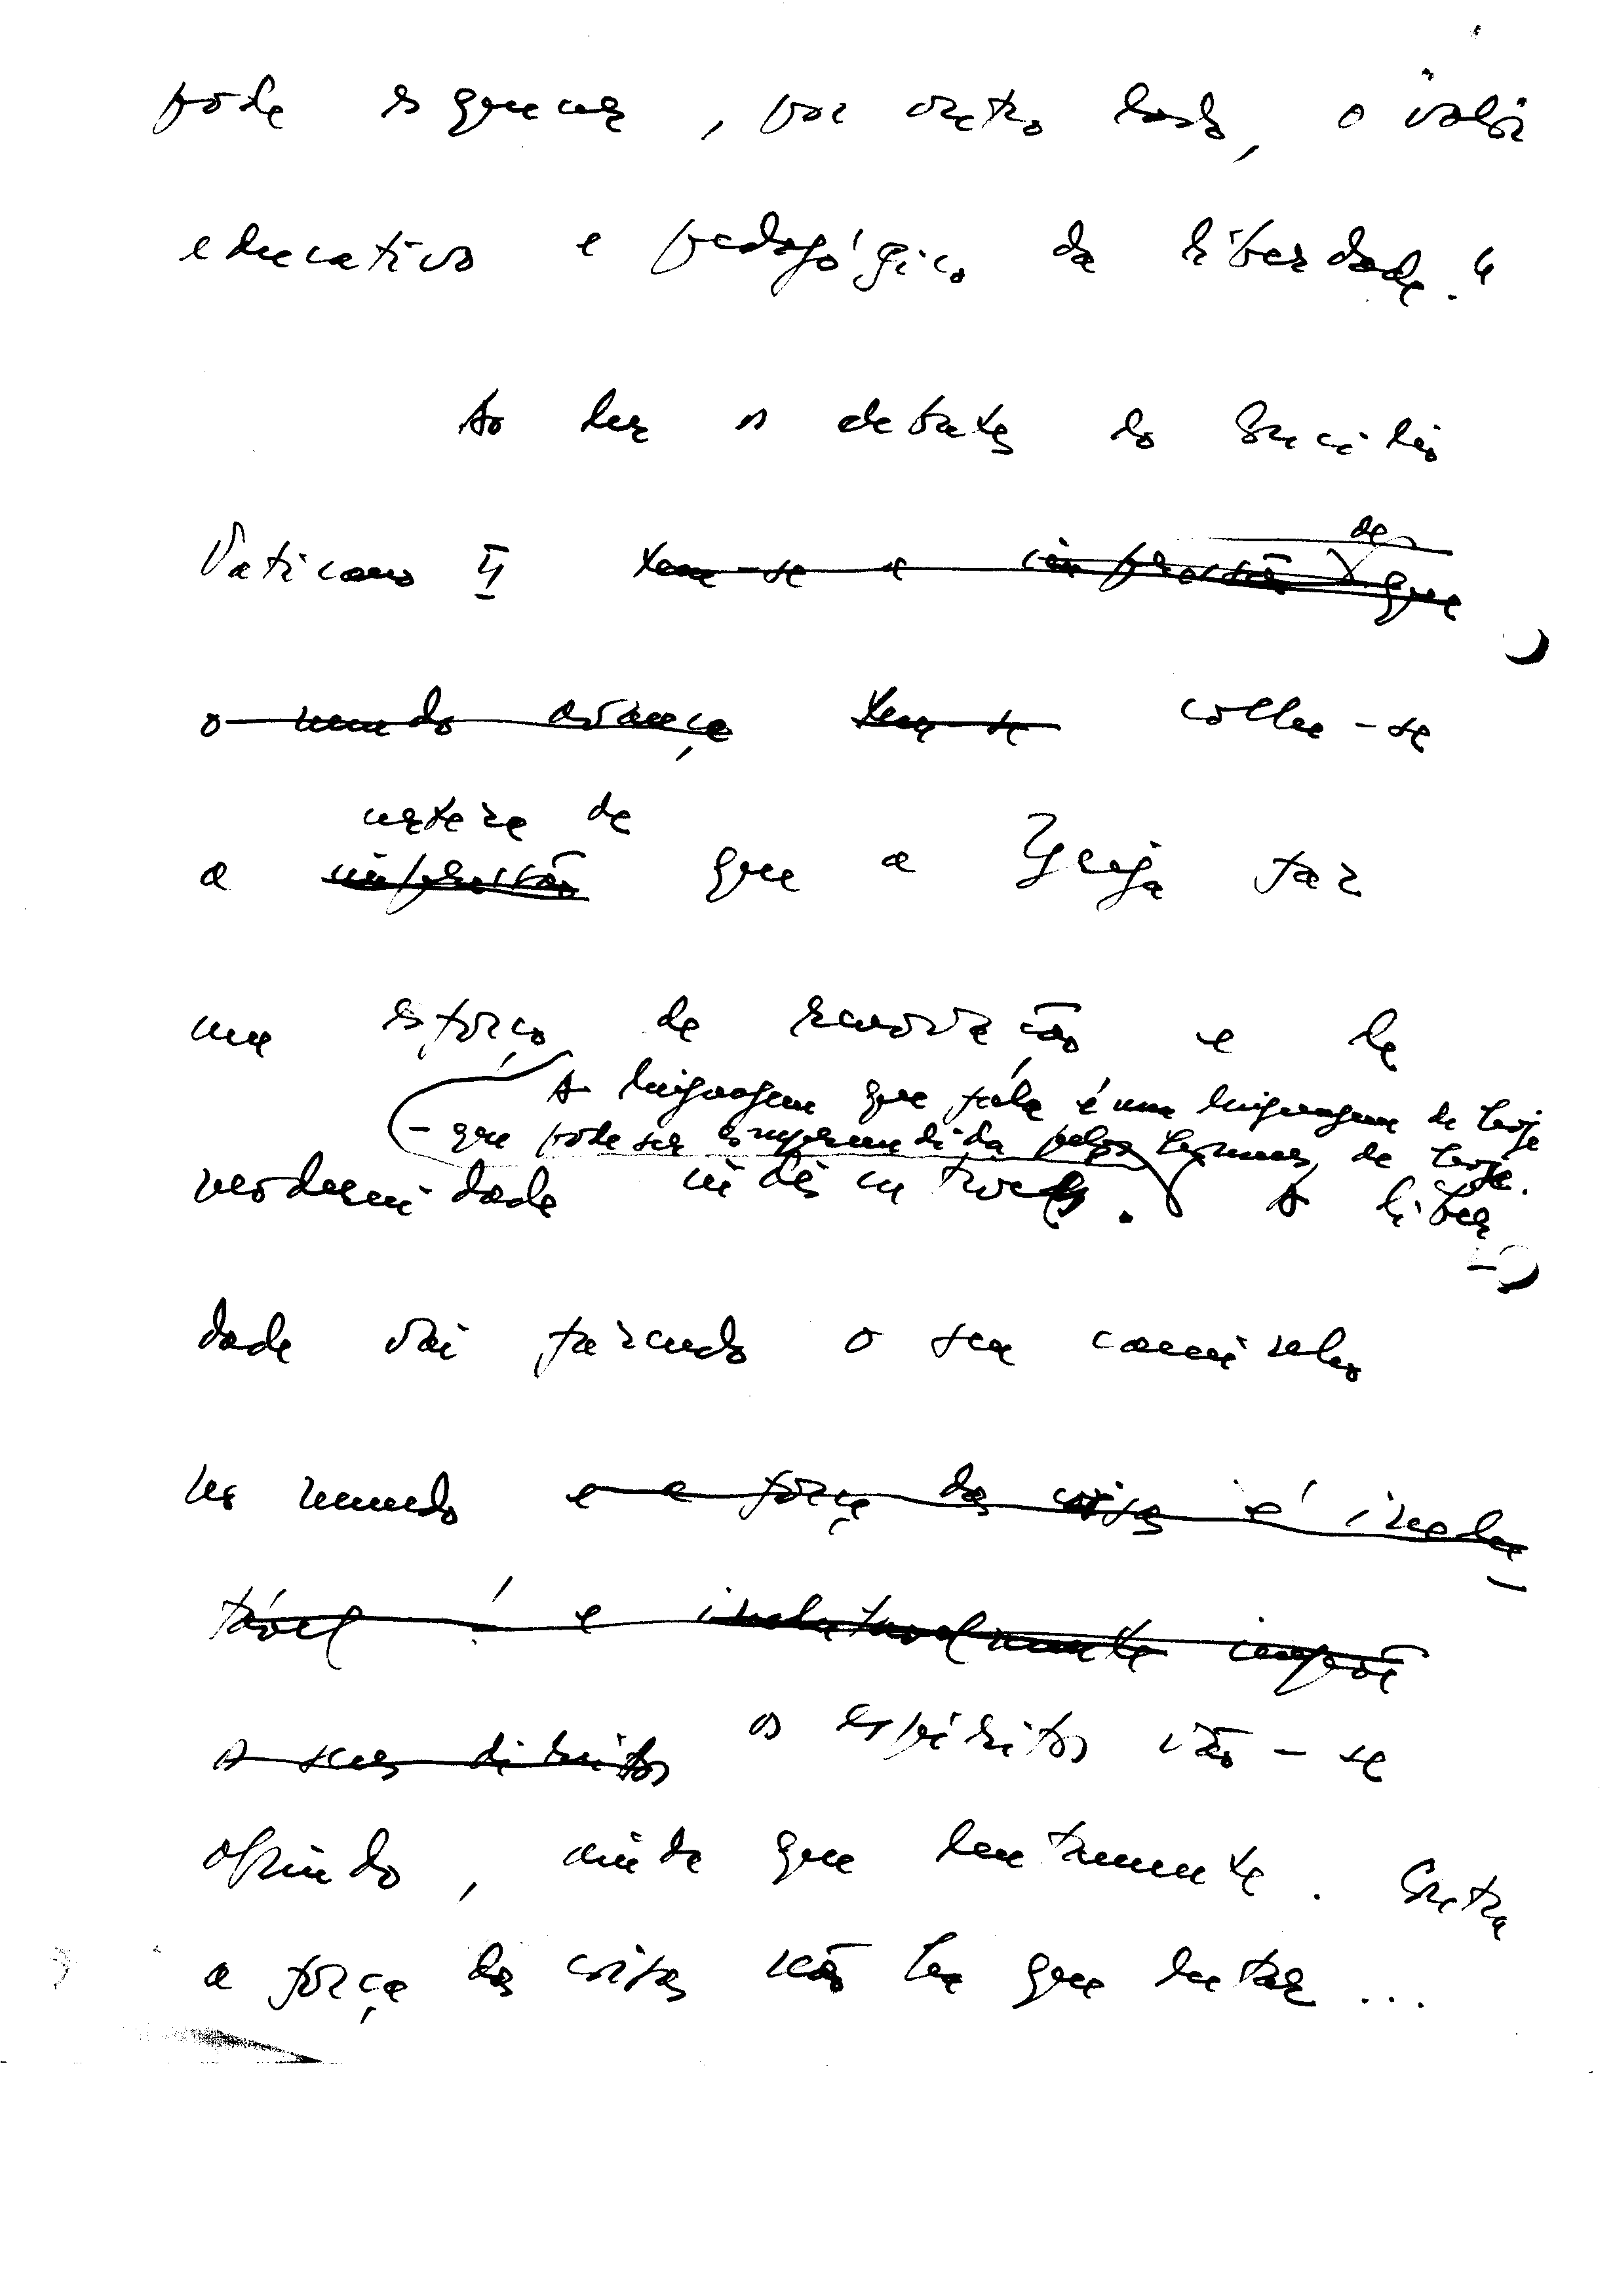 pode esquecer, por outro lado, o valor
educativo e pedagógico da liberdade."
Ao ler os debates do Concílio
de
Vaticano II tem-se a impressão que
o mundo avança tem-se colhe-se
certeza de
a impressão que a Igreja faz
um esforço de renovação e de
A linguagem que fala é uma linguagem de hoje
- que pode ser compreendida pelos homens de hoje.
modernidade A liber
dade vai fazendo o seu caminho
no mundo e a força das coisas é inelu-
tável! e inelutavelmente impõe
os seus direitos os espíritos vão-se
abrindo, ainda que lentamente. Contra
a força das coisas não há que lutar...